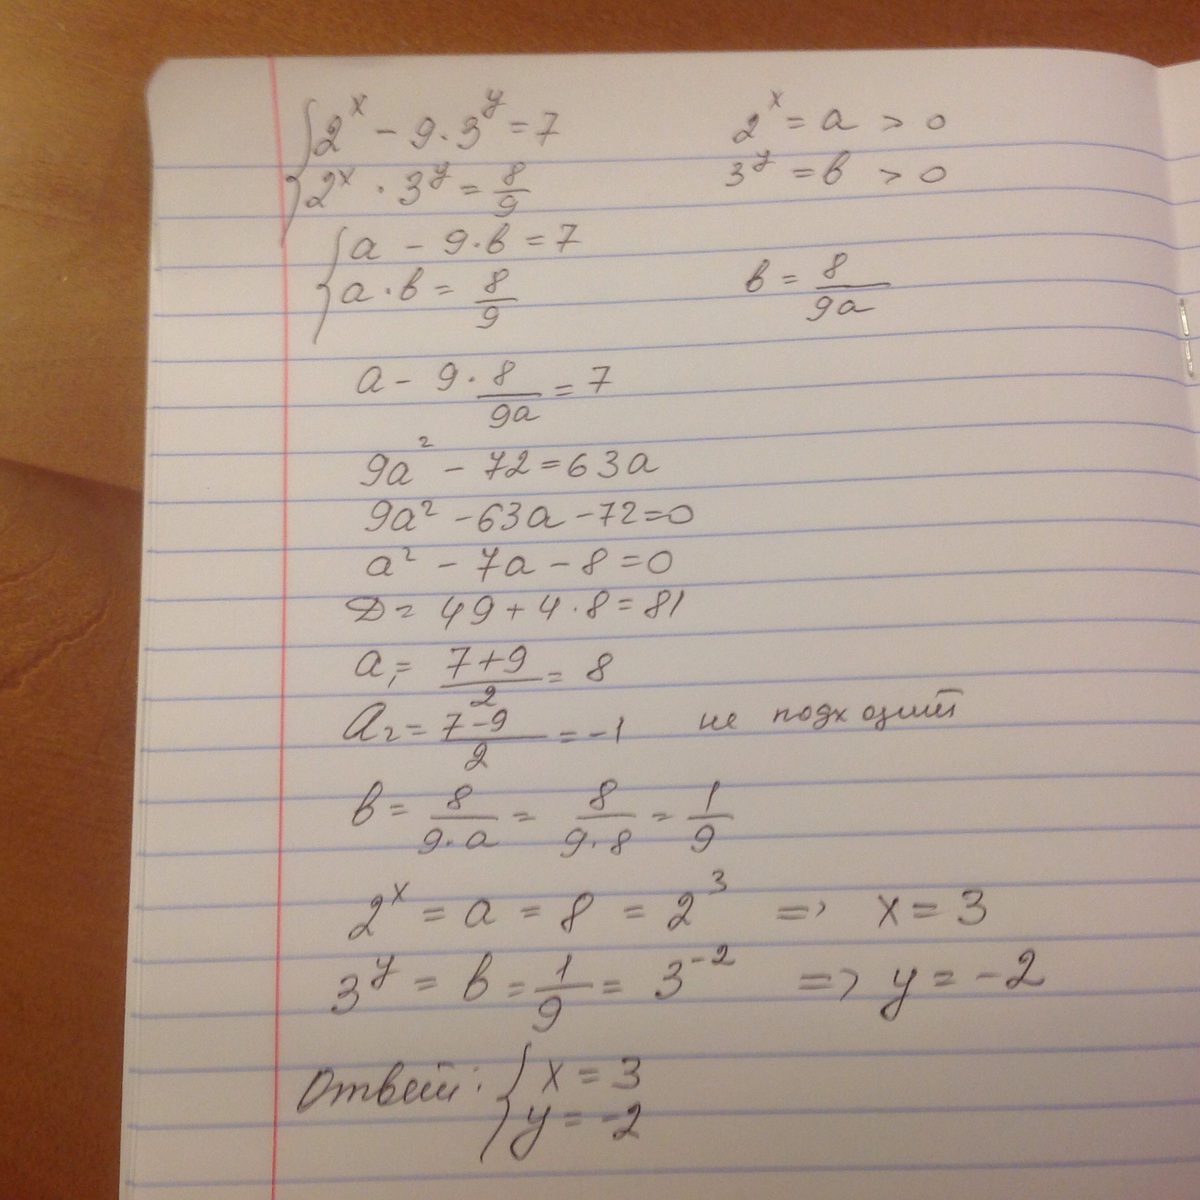 {2^x - 9·3^y = 7    2^x = a > 0
{2^x · 3^y = 8/9    3^y = b > 0
{a - 9·b = 7
{a·b = 8/9    b = 8/9a
a - 9·8/9a = 7
9a² - 72 = 63a
9a² - 63a - 72 = 0
a² - 7a - 8 = 0
D = 49 + 4·8 = 81
a₁ = (7+9)/2 = 8
a₂ = (7-9)/2 = -1    не подходит
b = 8/(9·a) = 8/(9·8) = 1/9
2^x = a = 8 = 2³ => x = 3
3^y = b = 1/9 = 3⁻² => y = -2
Ответ: {x = 3
{y = -2